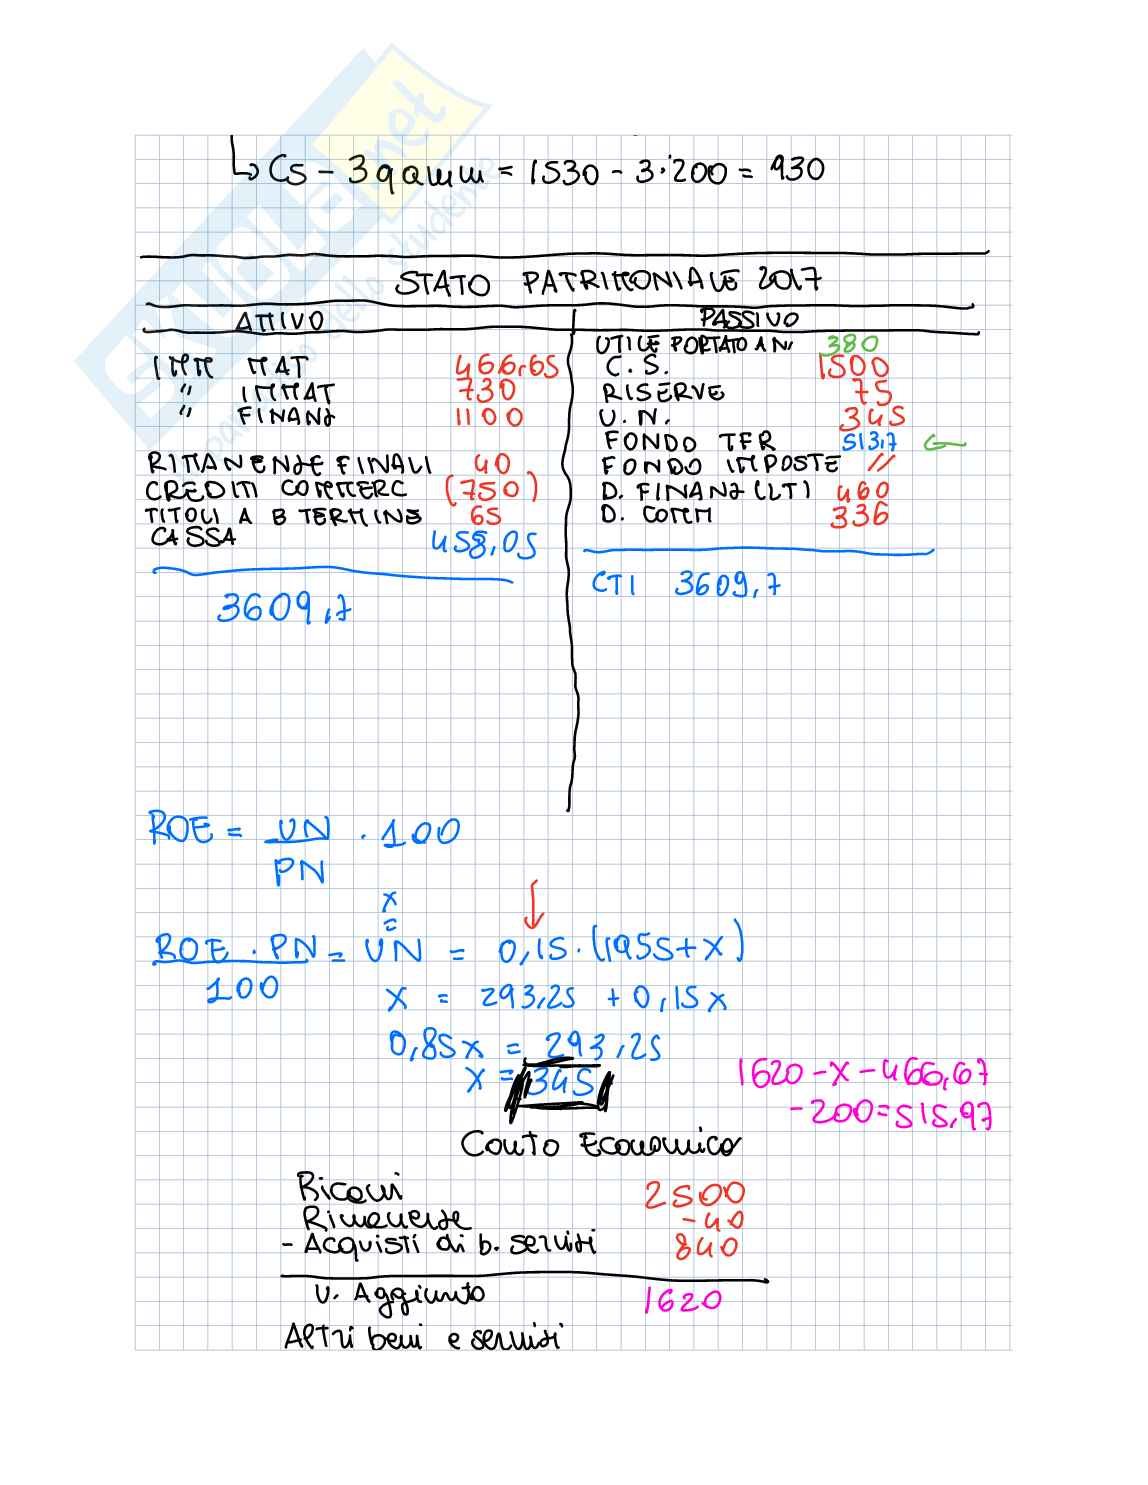 ↳ CS - 3 q amm = 1530 - 3·200 = 930
STATO PATRIMONIALE 2017
ATTIVO
PASSIVO
IMM MAT 466,65
" IMMAT 730
" FINANZ 1100
RIMANENZE FINALI 40
CREDITI COMMERC (750)
TITOLI A B TERMINE 65
CASSA 458,05
3609,7
UTILE PORTATO A N. 380
C.S. 1500
RISERVE 75
U.N. 345
FONDO TFR 513,7 ←
FONDO IMPOSTE //
D. FINANZ (LT) 460
D. COMM 336
CTI 3609,7
ROE = UN / PN · 100
x
=
ROE · PN / 100 = UN = 0,15 · (1955 + x)
x = 293,25 + 0,15x
0,85x = 293,25
x = 345
1620 - x - 466,67
- 200 = 515,97
Conto Economico
Ricavi 2500
Rimanenze -40
- Acquisti di b. servizi 840
V. Aggiunto 1620
Altri beni e servizi